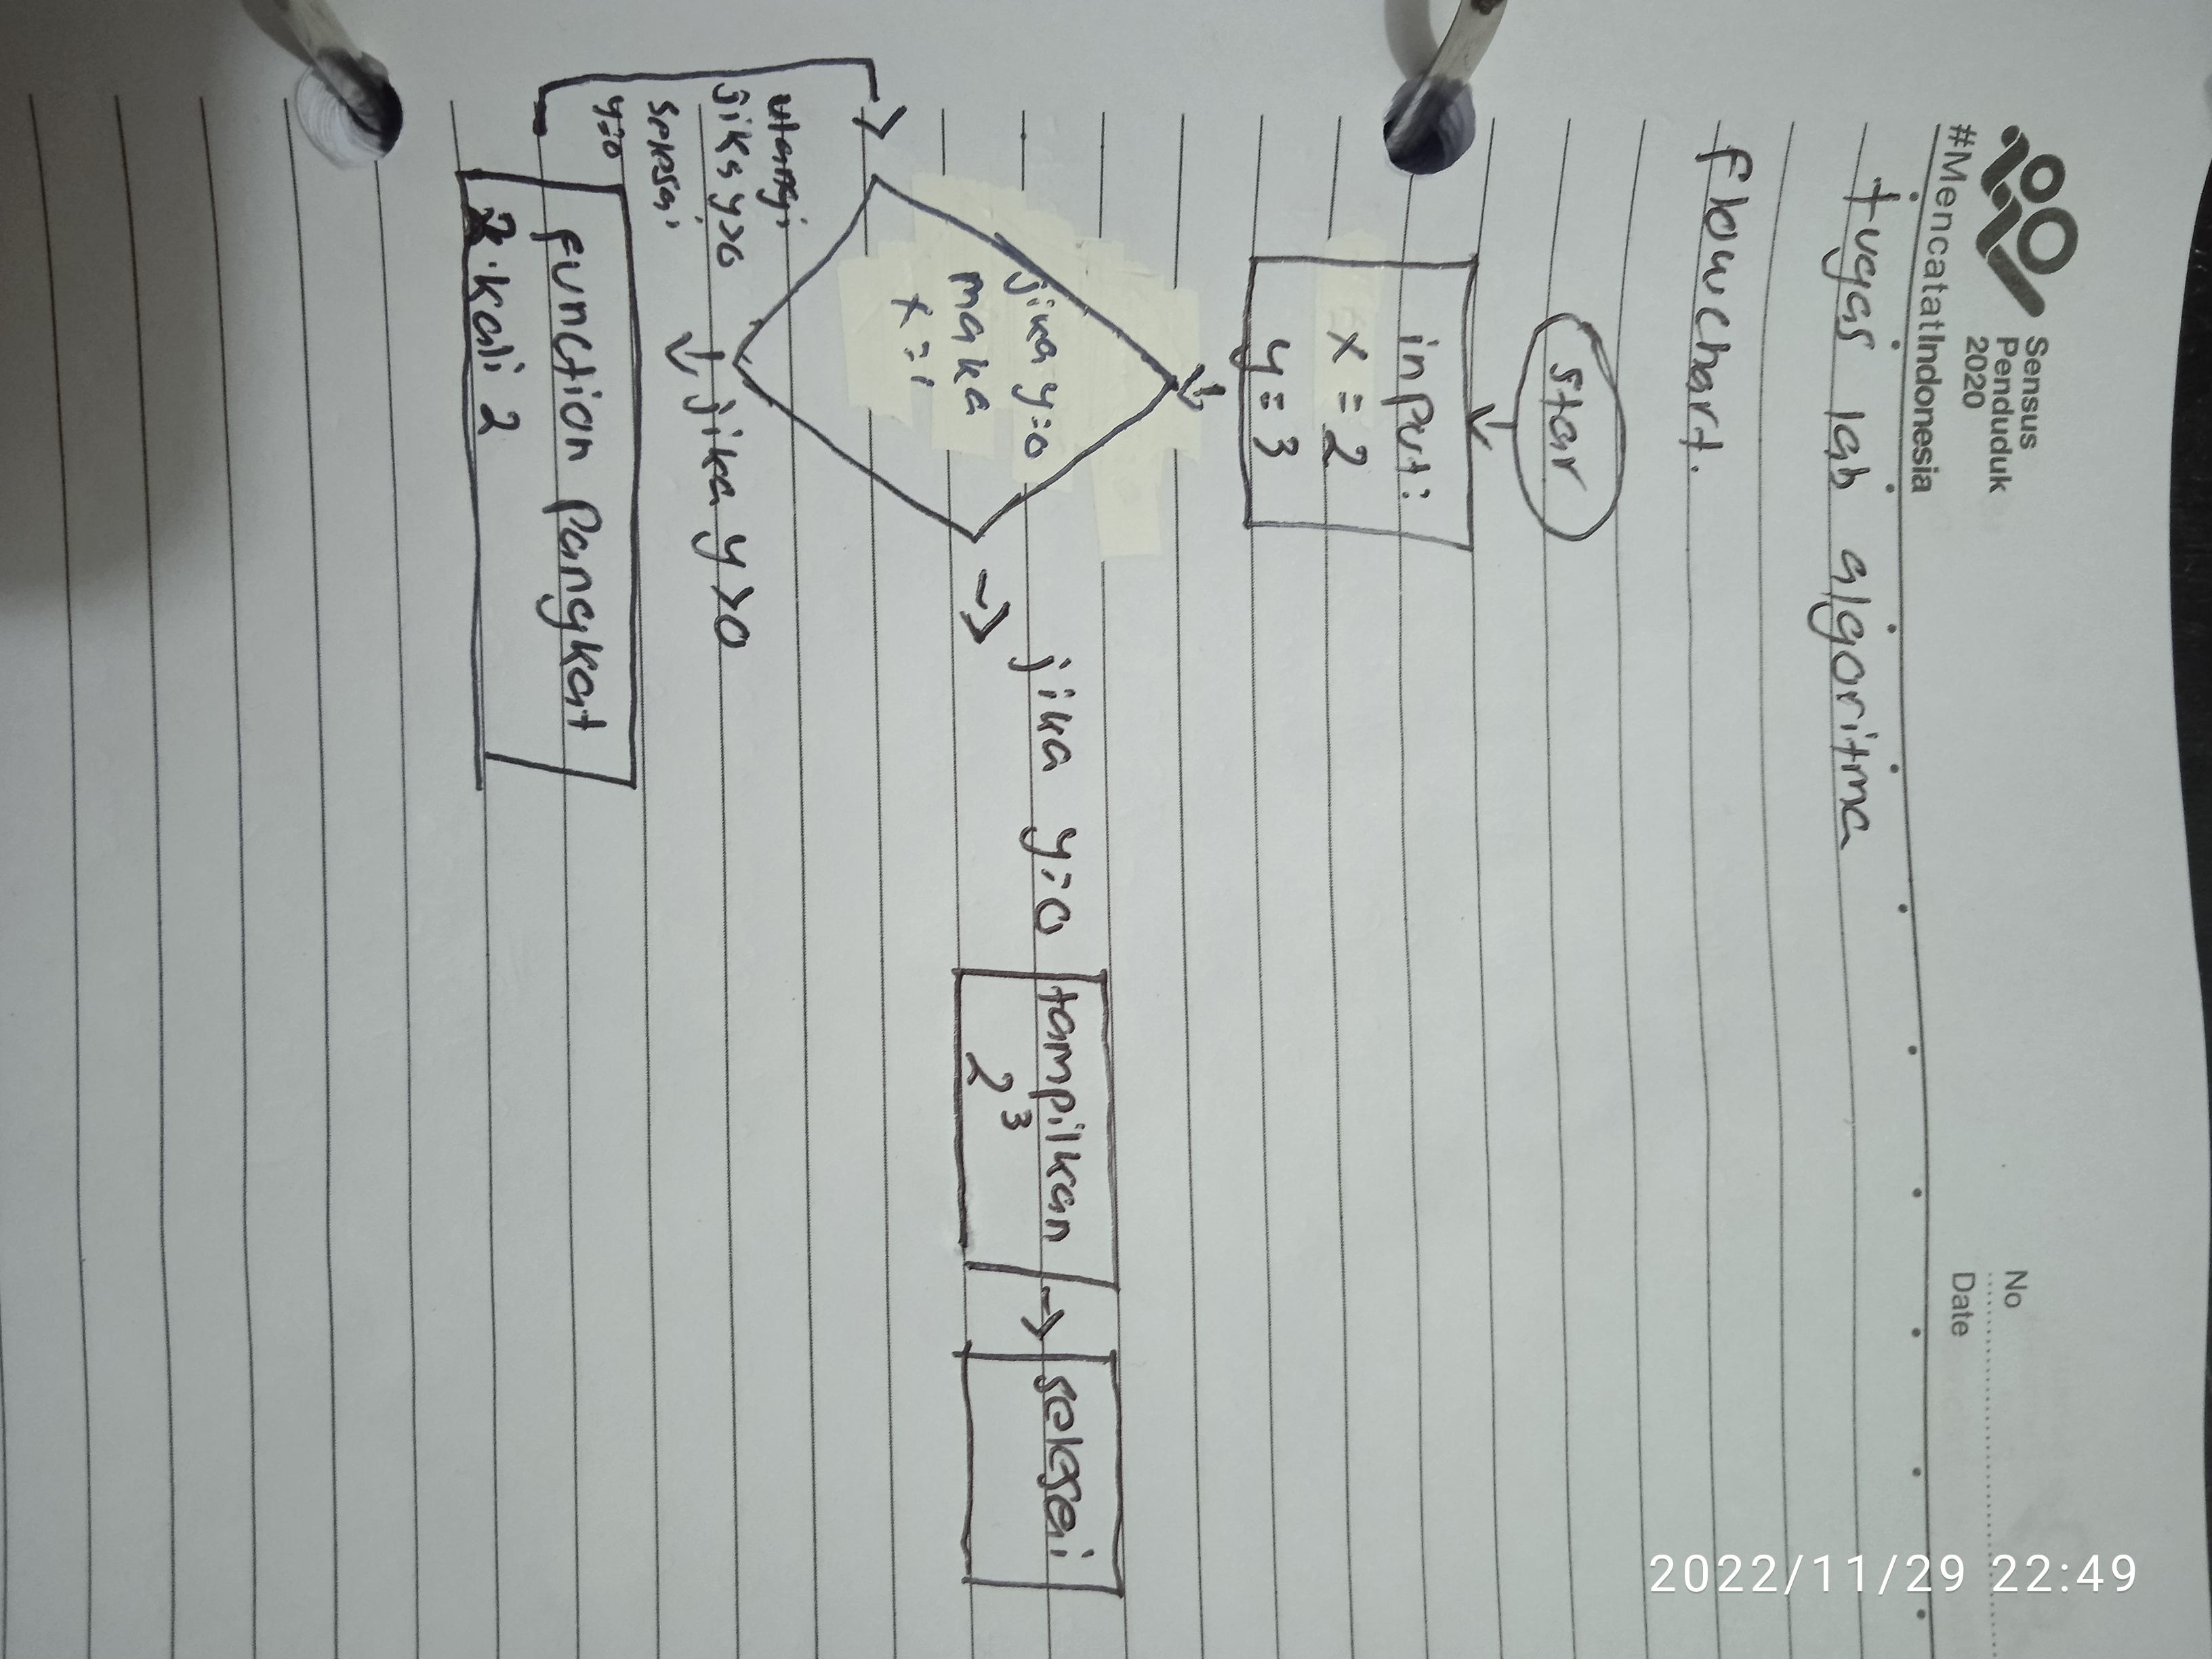 Sensus
Penduduk
2020
#MencatatIndonesia
No
Date
tugas lab algoritma
flowchart.
star
input:
x = 2
y = 3
jika y=0
maka
x=1
jika y=0
tampilkan
2³
selesai
ulangi
jika y>0
selesai
y=0
jika y>0
function pangkat
2.kali 2
2022/11/29 22:49